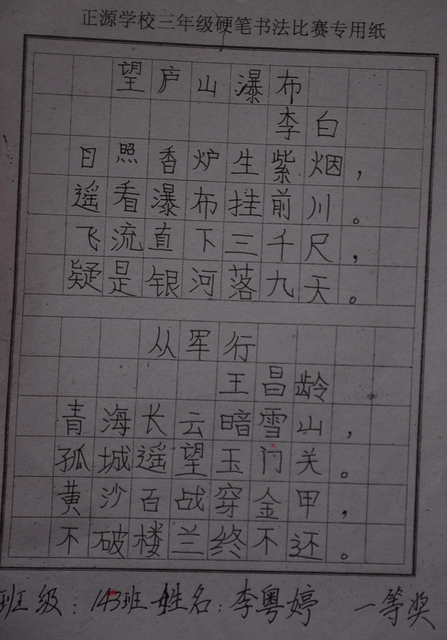 正源学校三年级硬笔书法比赛专用纸
望庐山瀑布
李白
日照香炉生紫烟，
遥看瀑布挂前川。
飞流直下三千尺，
疑是银河落九天。
从军行
王昌龄
青海长云暗雪山，
孤城遥望玉门关。
黄沙百战穿金甲，
不破楼兰终不还。
班级：143班 姓名：李粤婷 一等奖